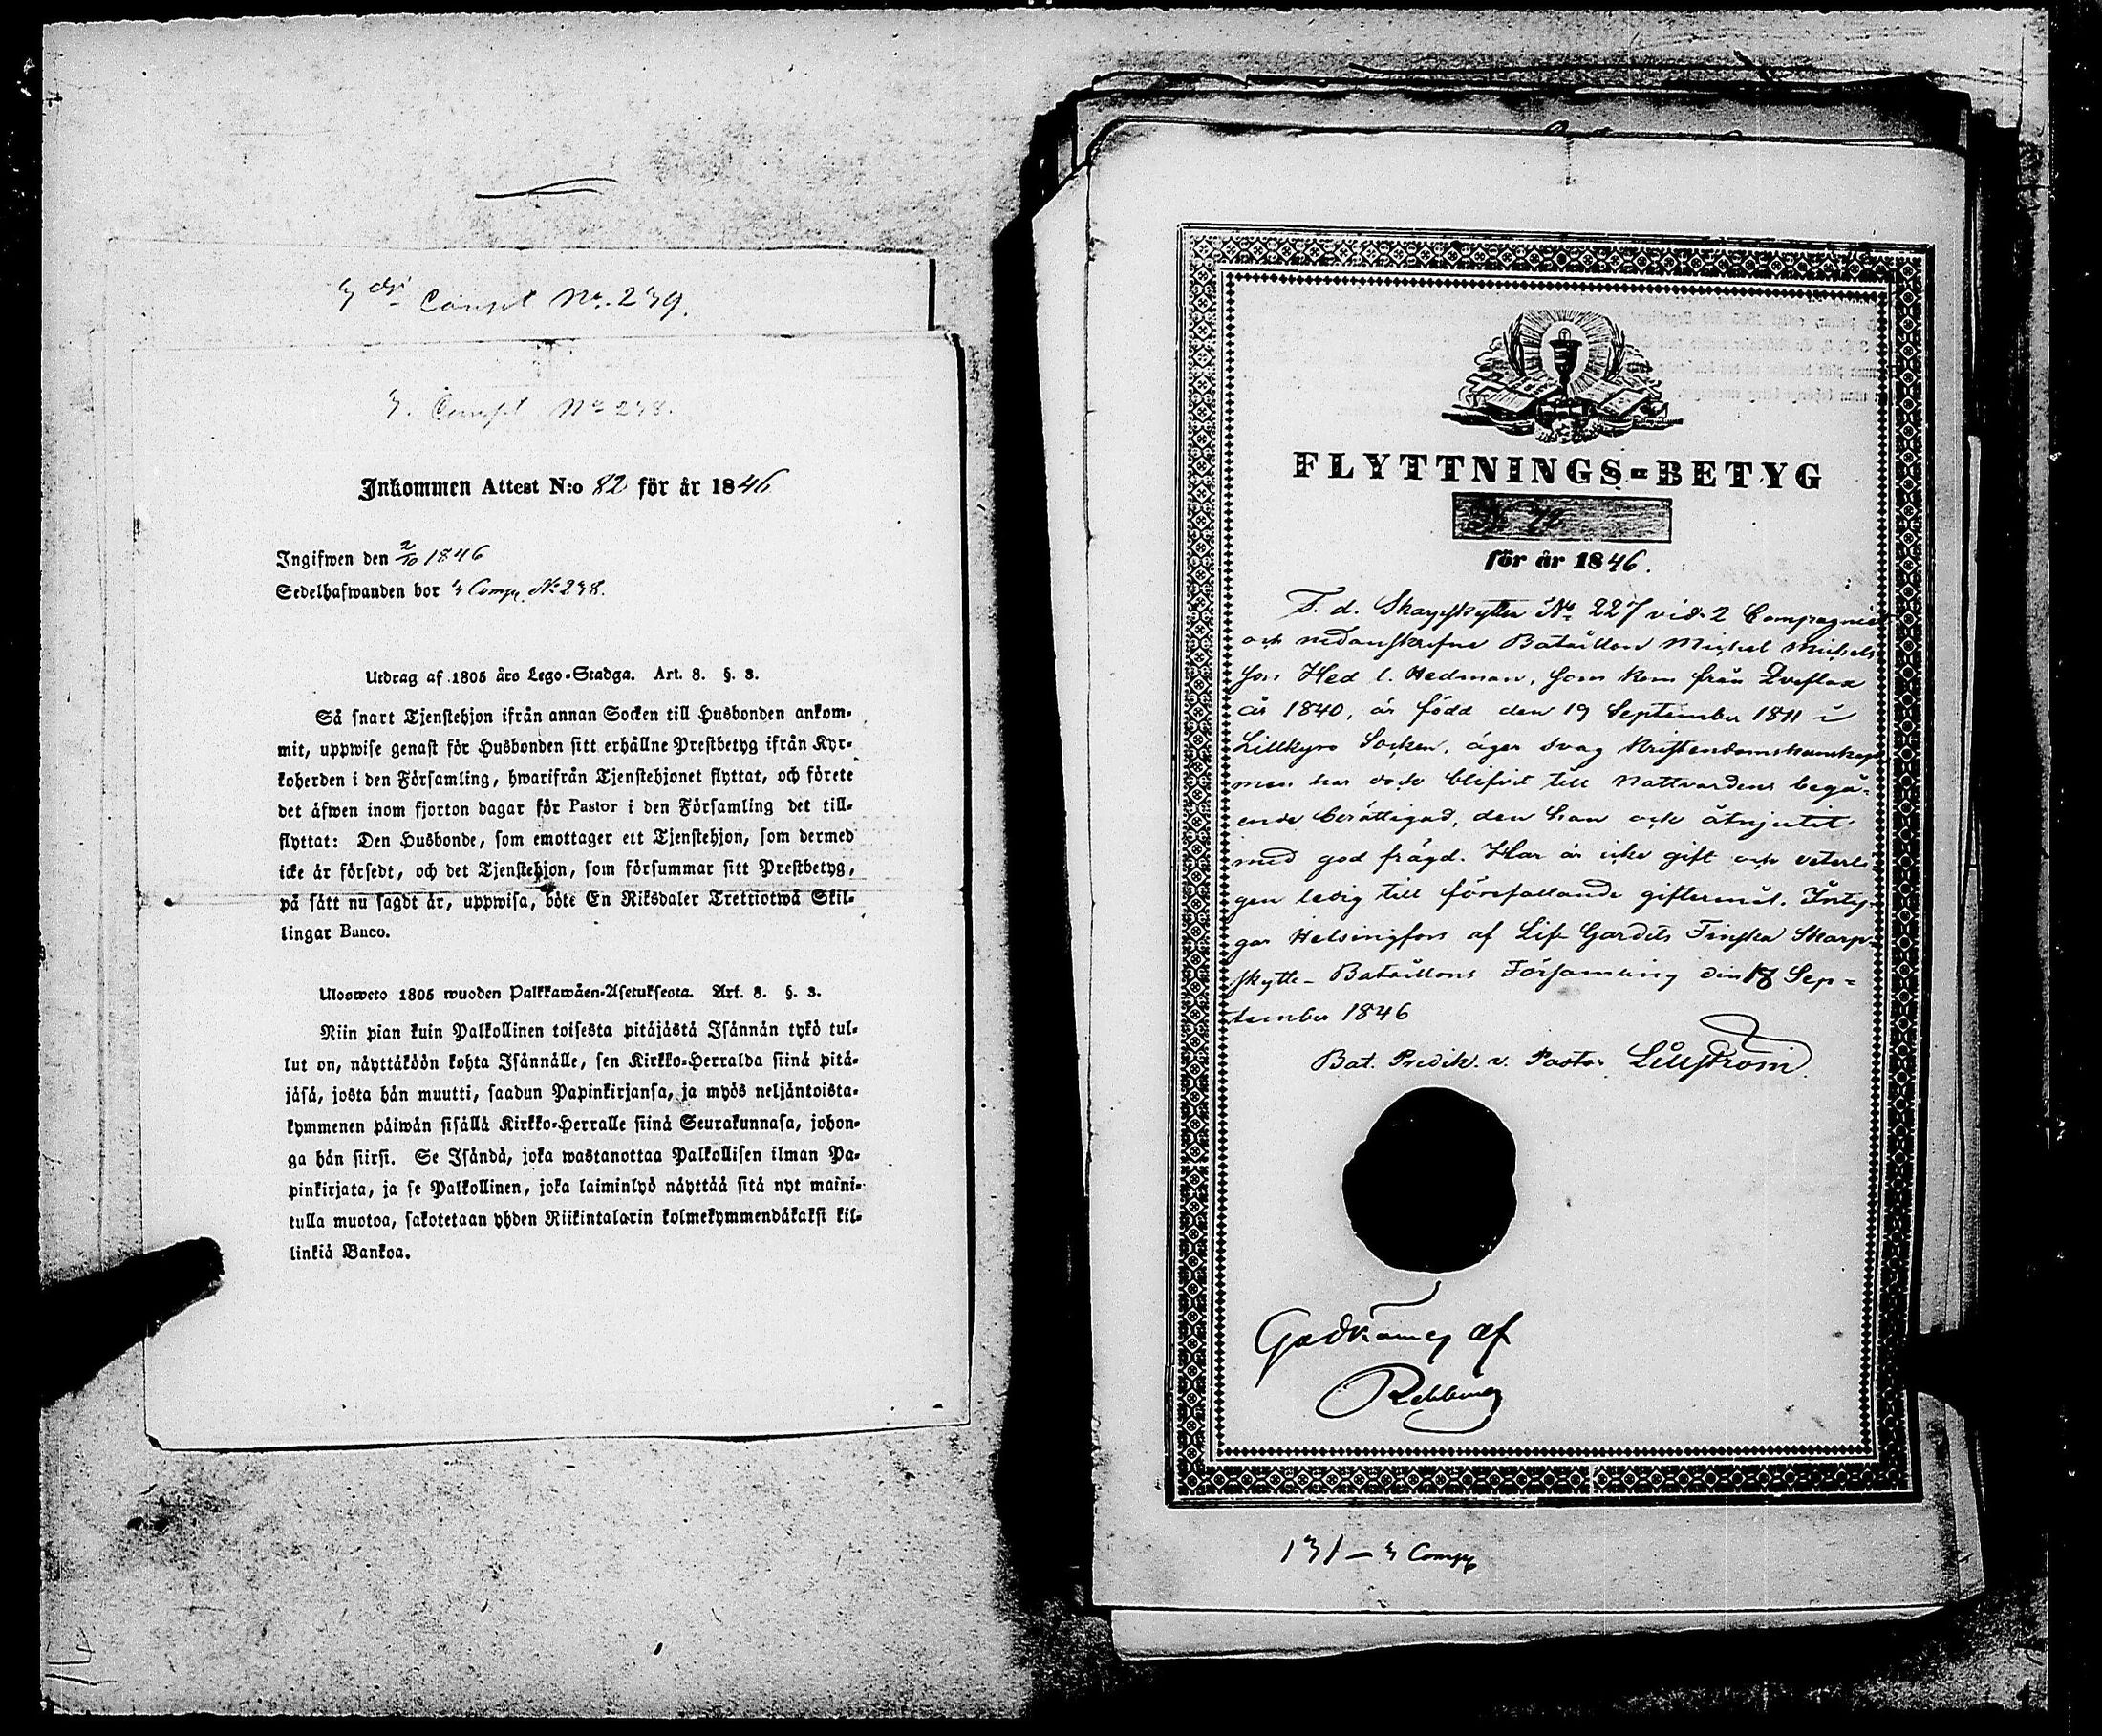 Compt No. 239.
Compt No 238.
Inkommen Attest N:o 82 för år 1846
Ingifwen den 2/10 1846
Sedelhafwanden bor 3 Comp. No 238.
Utdrag af 1805 års Lego-Stadga. Art. 8. §. 3.
Så snart Tjenstehjon ifrån annan Socken till Husbonden ankom-
mit, uppwise genast för Husbonden sitt erhållne Prestbetyg ifrån Kyr-
koherden i den Församling, hwarifrån Tjenstehjonet flyttat, och förete
det äfwen inom fjorton dagar för Pastor i den Församling det till-
flyttat: Den Husbonde, som emottager ett Tjenstehjon, som dermed
icke är försedt, och det Tjenstehjon, som försummar sitt Prestbetyg,
på sätt nu sagdt är, uppwisa, böte En Riksdaler Trettiotwå Skil-
lingar Banco.
Ulosweto 1805 wuoden Palkkawäen-Asetuksesta. Art. 8. §. 3.
Niin pian kuin Palkollinen toisesta pitäjästä Isännän tykö tul-
lut on, näyttäköön kohta Isännälle, sen Kirkko-Herralda siinä pitä-
jäsä, josta hän muutti, saadun Papinkirjansa, ja myös neljäntoista-
kymmenen päiwän sisällä Kirkko-Herralle siinä Seurakunnasa, johon-
ga hän siirsi. Se Isändä, joka wastanottaa Palkollisen ilman Pa-
pinkirjata, ja se Palkollinen, joka laiminlyö näyttää sitä nyt maini-
tulla muotoa, sakotetaan yhden Riikintalarin kolmekymmendäkaksi kil-
linkiä Bankoa.
FLYTTNINGS-BETYG
N 72
för år 1846.
F. d. Skarpskytten No 227 vid 2 Compagniet
och nedanskrefne Bataillon Michel Michels
son Hed l. Hedman, som kom från Qveflax
år 1840, är född den 19 September 1811 i
Lillkyro Socken, äger svag Kristendomskunskap
men har dock blifvit till Nattvardens begå-
ende berättigad, den han ock åtnjutit
med god frägd. Har är icke gift och veterli-
gen ledig till förefallande giftermål. Inty-
gar Helsingfors af Lif Gardets Finska Skarp-
skytte-Bataillons Församling den 18 Sep-
tember 1846
Bat. Predik. v. Pastor Lillström
Godkännes af
Rehbinder
131 - 3 Comp